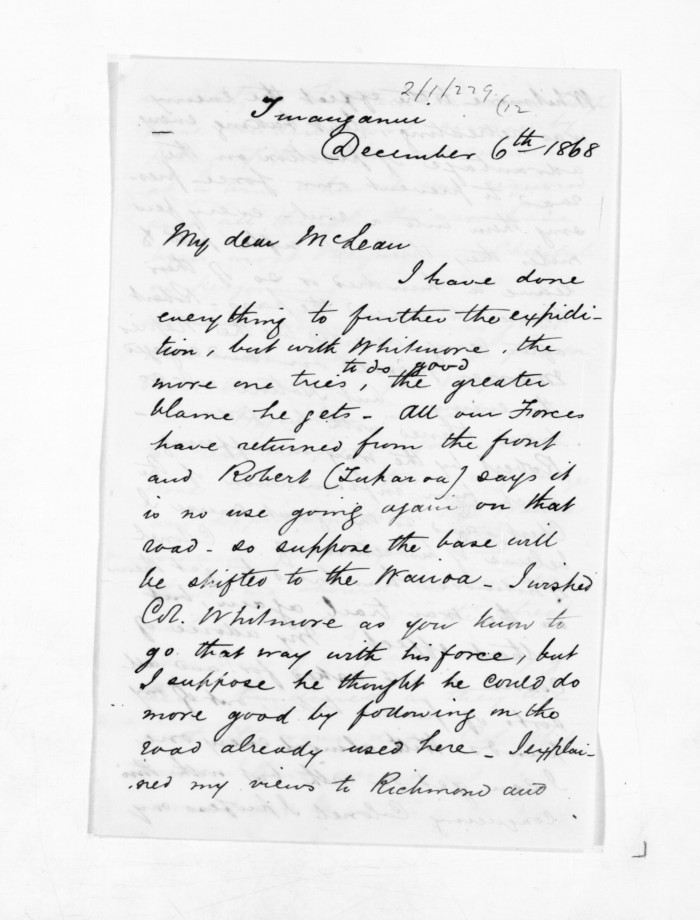 2/1/229/12
Turanganui
December 6th 1868
My dear McLean
I have done
everything to further the expidi-
tion, but with Whitmore, the
more one tries to do good, the greater
blame he gets - All our Forces
have returned from the front
and Robert (Tukaroa) says it
is no use going again on that
road - so suppose the base will
be shifted to the Wairoa - I wished
Col. Whitmore as you know to
go that way with his force, but
I suppose he thought he could do
more good by following on the
road already used here - I explai-
ned my views to Richmond and